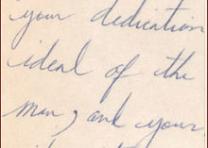 your dedication
ideal of the
man, and your